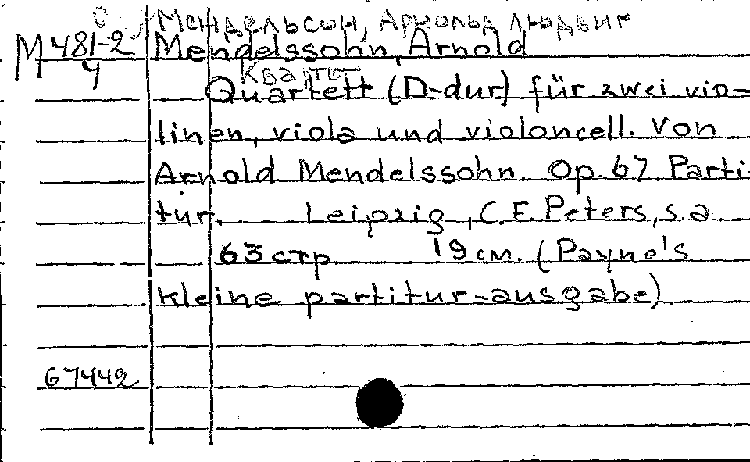 Мендельсон, Арнольд Людвиг
М 481-2 Mendelssohn, Arnold
4
Квартет
Quartett (D-dur) für zwei vio-
linen, viola und violoncell. Von
Arnold Mendelssohn. Op. 67 Parti-
tur. Leipzig, C.F. Peters, s.a.
63 стр. 19 см. (Payne's
kleine partitur-ausgabe)
67442